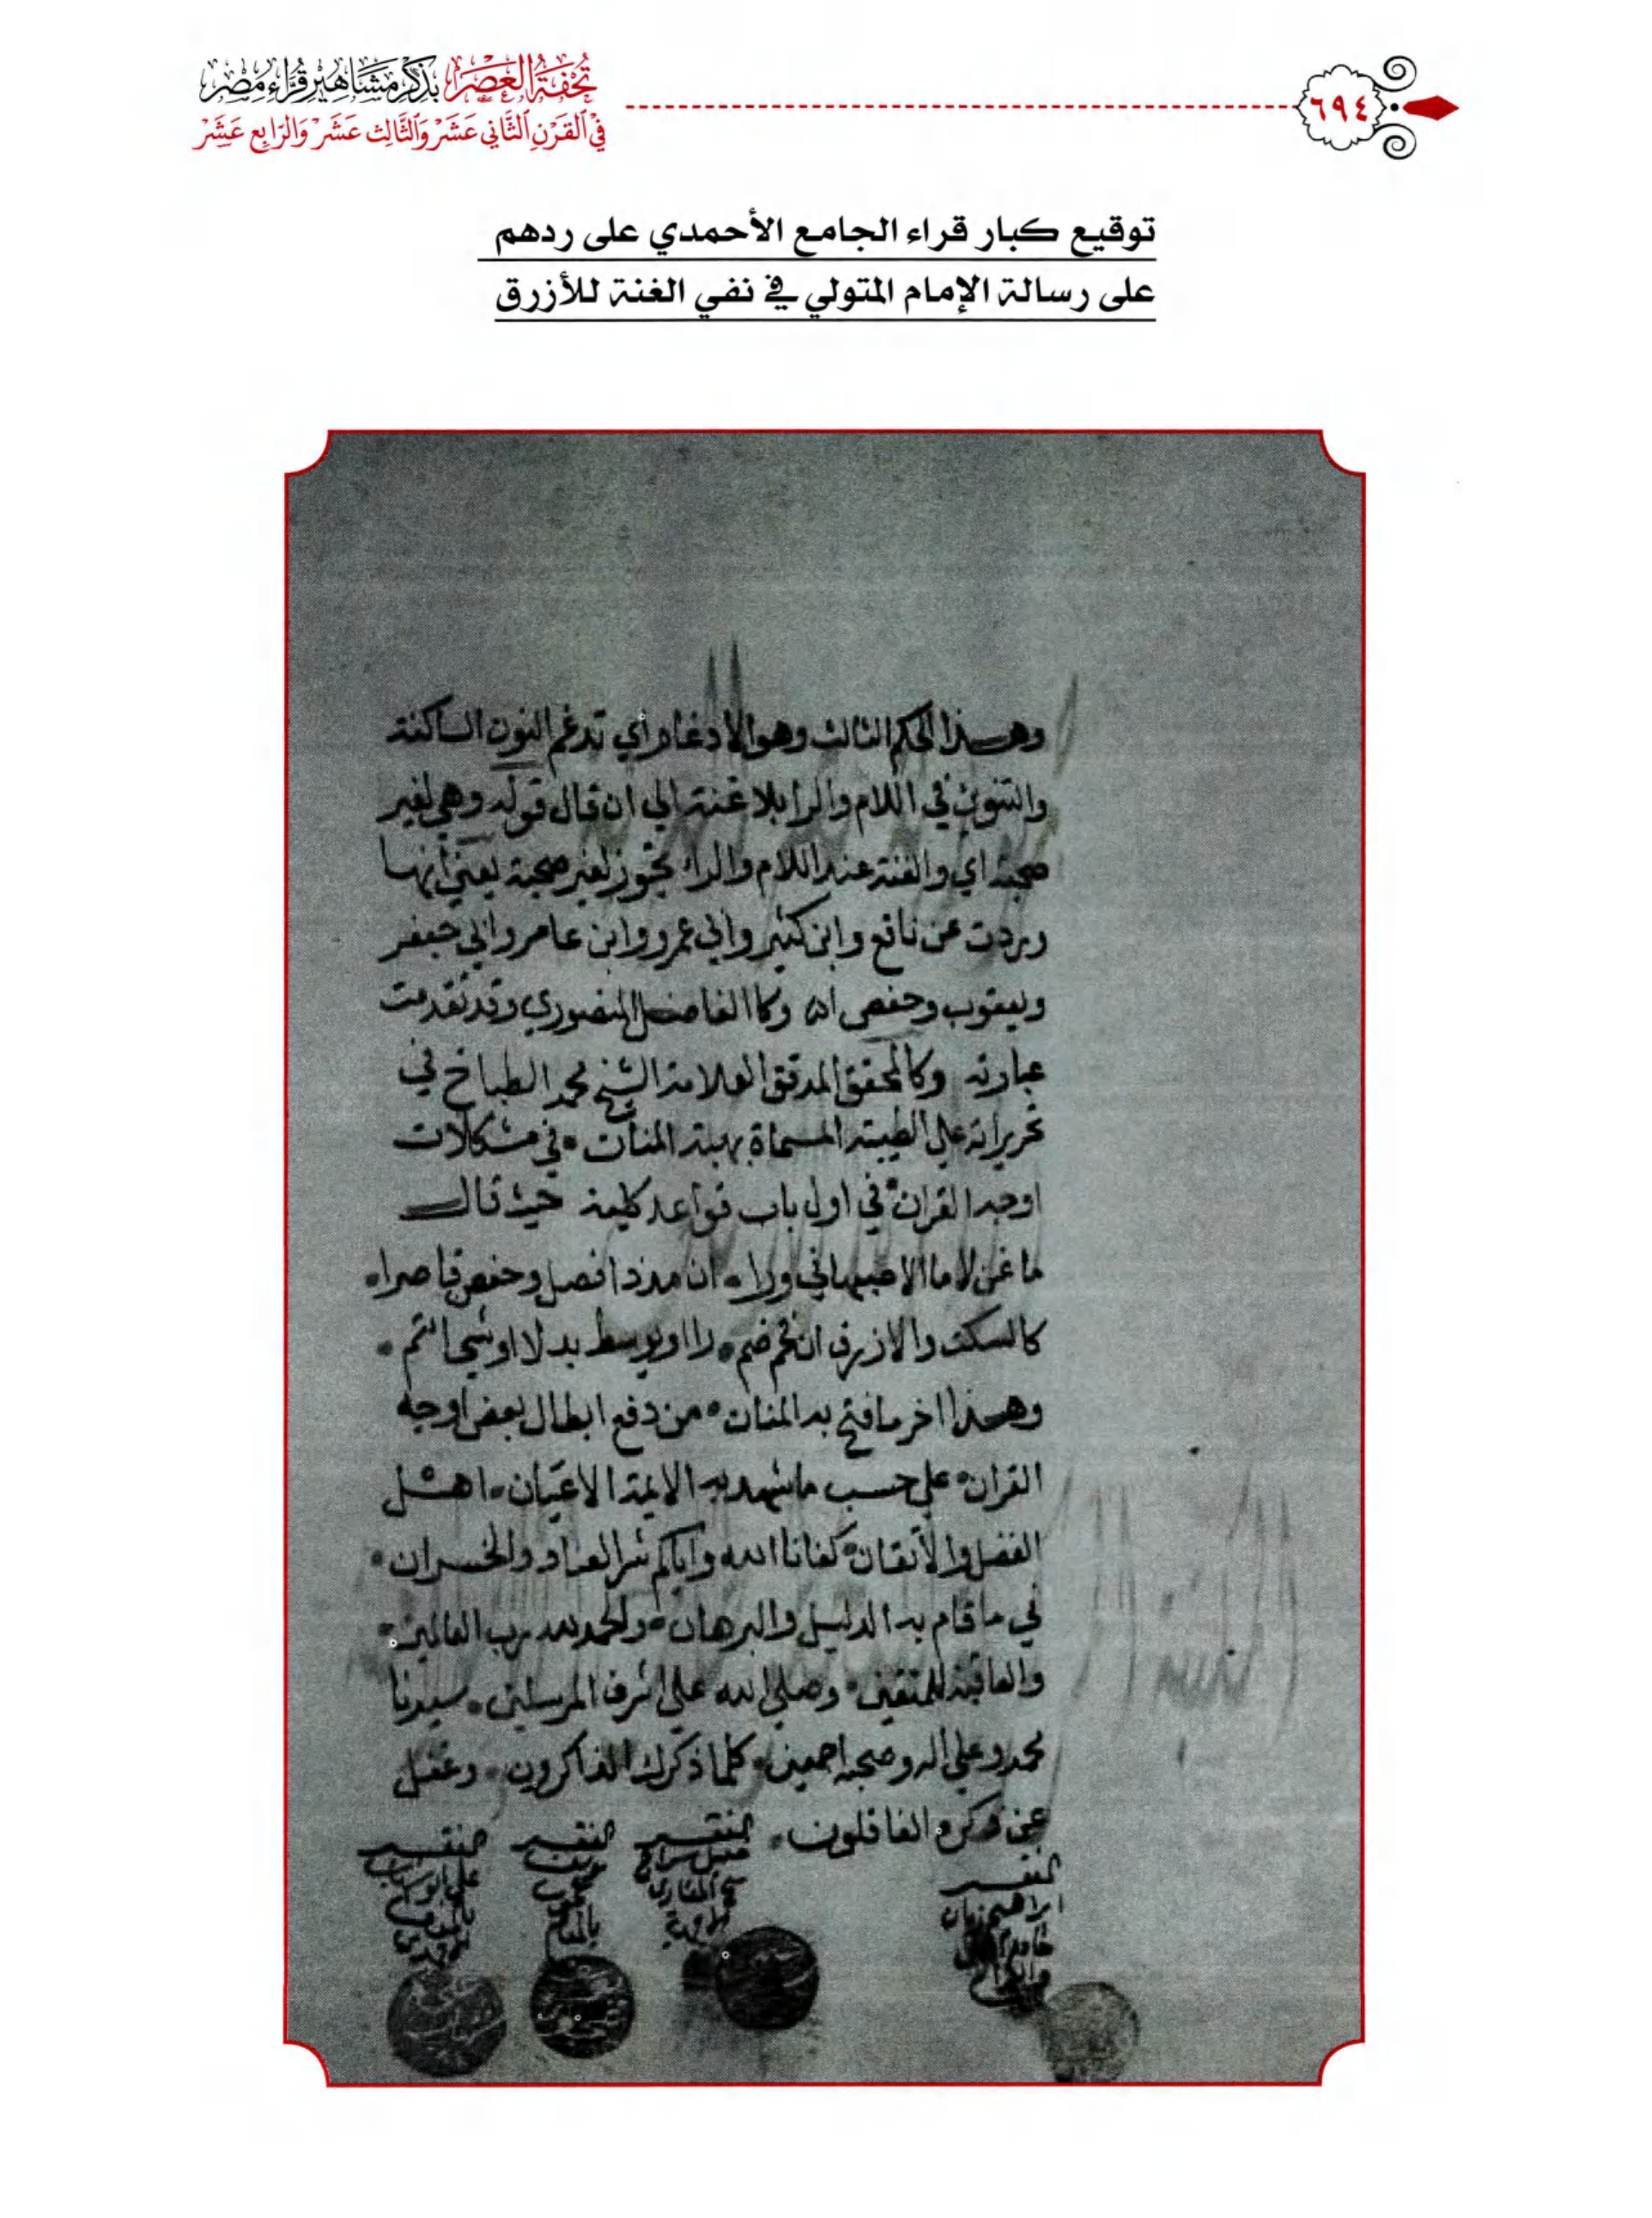 ٦٩٤
تُحْفَةُ العَصْرِ بِذِكْرِ مَشَاهِيرِ قُرَّاءِ مِصْرَ
فِي القَرْنِ الثَّانِي عَشَرَ وَالثَّالِث عَشَرَ وَالرَّابِع عَشَرَ
توقيع كبار قراء الجامع الأحمدي على ردهم
على رسالة الإمام المتولي في نفي الغنة للأزرق
وهـذا الحكم الثالث وهو الادغام اي تدغم النون الساكنة
والتنوين في اللام والرا بلا غنة الي ان قال قوله وهي لغير
صحبة اي والغنة عند اللام والراء تجوز لغير صحبة يعني أنها
وردت عن نافع وابن كثير وأبي عمرو وابن عامر وابي جعفر
ويعقوب وحفص اه وكالفاضل المنصوري وقد تقدمت
عبارته وكالمحقق المدقق العلامة الشيخ محمد الطباخ في
تحريراته علي الطيبة المسماة بهبة المنان في مشكلات
اوجه القران في اول باب قواعد كلية حيث قال
ما غن لاما الاصبهاني ورا ان مد ذا فصل وحفص قاصرا
كالسكت والازرق ان فخم ضم را او يوسط بدلا او شيا تم
وهـذا اخر ما فتح به المنان من دفع ابطال بعض اوجه
القران علي حسب ما شهد به الايمة الاعيان اهـل
الفضل والاتقان كفانا الله واياكم شر العناد والخسران
في ما قام به الدليل والبرهان والحمد لله رب العالمين
والعاقبة للمتقين وصلي الله علي اشرف المرسلين سيدنا
محمد وعلي اله وصحبه اجمعين كلما ذكرك الذاكرون وغفل
عن ذكره الغافلون
الفقير الفقير الفقير
الفقير
ابراهيم
خادم